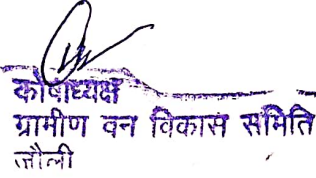 कोषाध्यक्ष
ग्रामीण वन विकास समिति
जौली